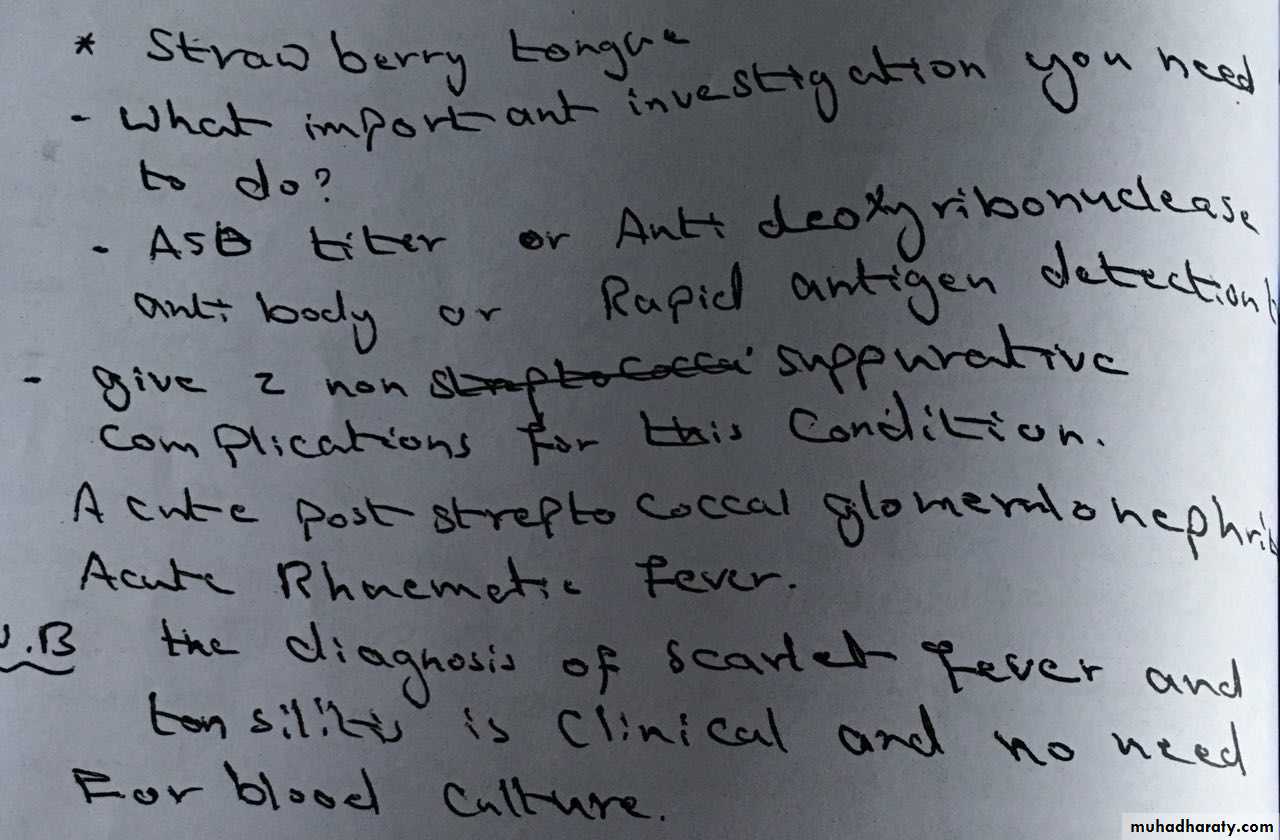 * Strawberry tongue
- What important investigation you need
to do?
- ASO titer or Anti deoxyribonuclease
antibody or Rapid antigen detection
- give 2 non streptococcal suppurative
complications for this Condition.
Acute post streptococcal glomerulonephri
Acute Rhuematic fever.
.B the diagnosis of scarlet fever and
tonsilitis is Clinical and no need
For blood culture.
muhadharaty.com